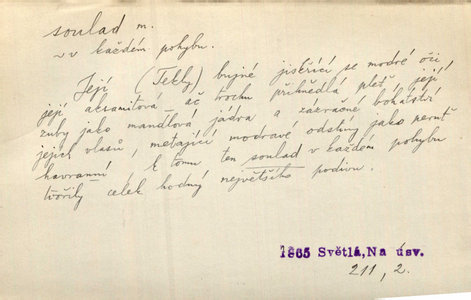 soulad m.
~ v každém pohybu.
Její (Tekly) bujné jiskřící se modré oči,
její aksamitová ač trochu přihnědlá pleť, její
zuby jako mandlová jádra a zázračné bohatství
jejích vlasů, metající modravé odstíny jako peruť
havranní, k tomu ten soulad v každém pohybu
tvořily celek hodný největšího podivu.
1865 Světlá, Na úsv.
211, 2.